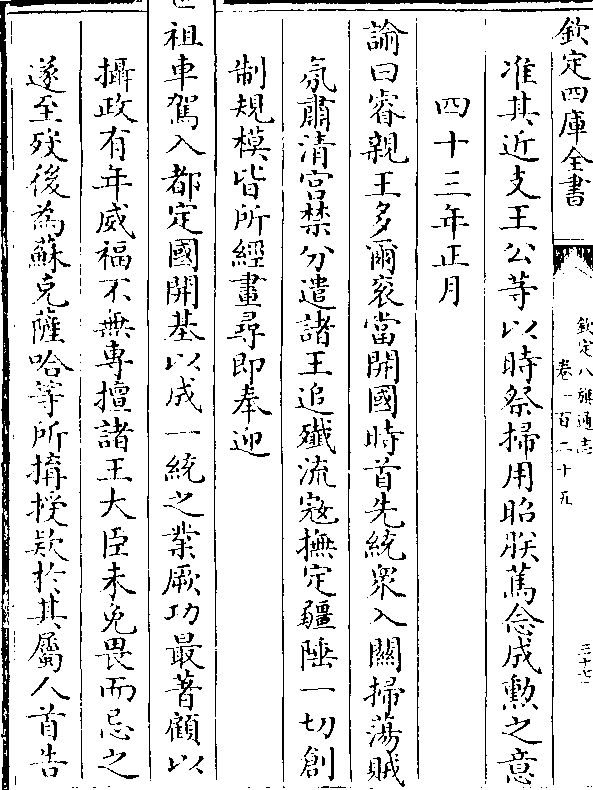 欽定四庫全書
欽定八旗通志
卷一百二十五
三十七
准其近支王公等以時祭掃用昭朕篤念成勲之意
四十三年正月
諭曰睿親王多爾衮當開國時首先統衆入關掃蕩賊
氛肅清宫禁分遣諸王追殲流寇撫定疆陲一切創
制規模皆所經畫尋即奉迎
世祖車駕入都定國開基以成一統之業厥功最著顧以
攝政有年威福不無專擅諸王大臣未免畏而忌之
遂至殁後為蘇克薩哈等所搆授欵於其屬人首告